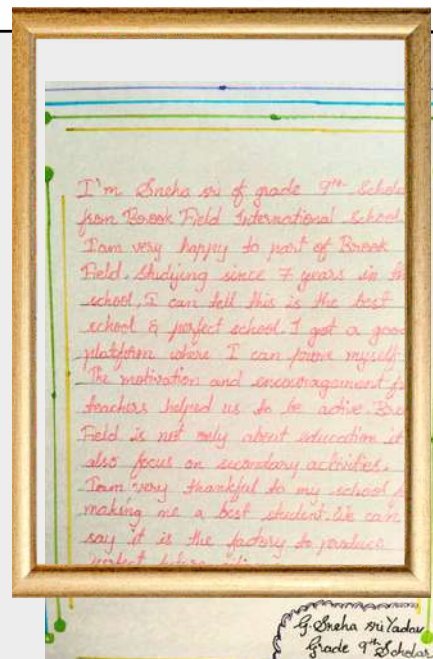 I'm Sneha sri of grade 9th Schola
from Brook Field International School
I am very happy to part of Brook
Field. Studying since 7 years in th
school. I can tell this is the best
school & perfect school. I got a goo
platform where I can prove myself
The motivation and encouragement f
teachers helped us to be active. Bro
Field is not only about education it
also focus on secondary activities.
I am very thankful to my school f
making me a best student. We can
say it is the factory to produce
G. Sneha sri Yadav
Grade 9th Scholar